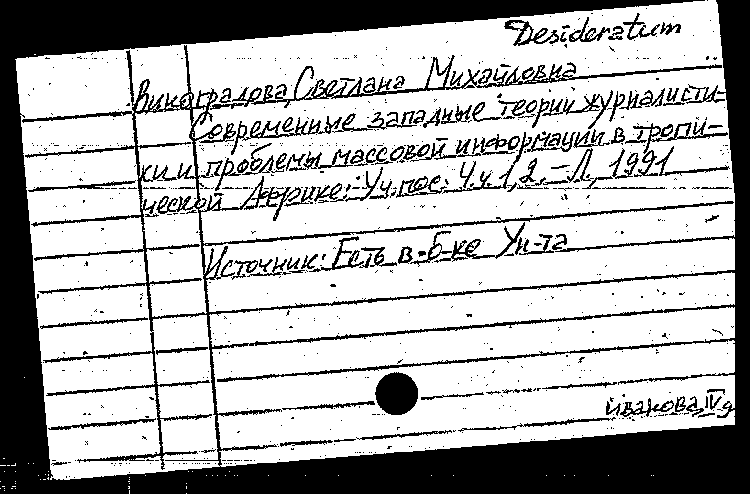 Desideratum
Виноградова, Светлана Михайловна
Современные западные теории журналисти-
ки и проблемы массовой информации в тропи-
ческой Африке: Уч. пос. Ч.ч. 1, 2. – Л., 1991
Источник: Есть в б-ке Ун-та
Иванова, IV